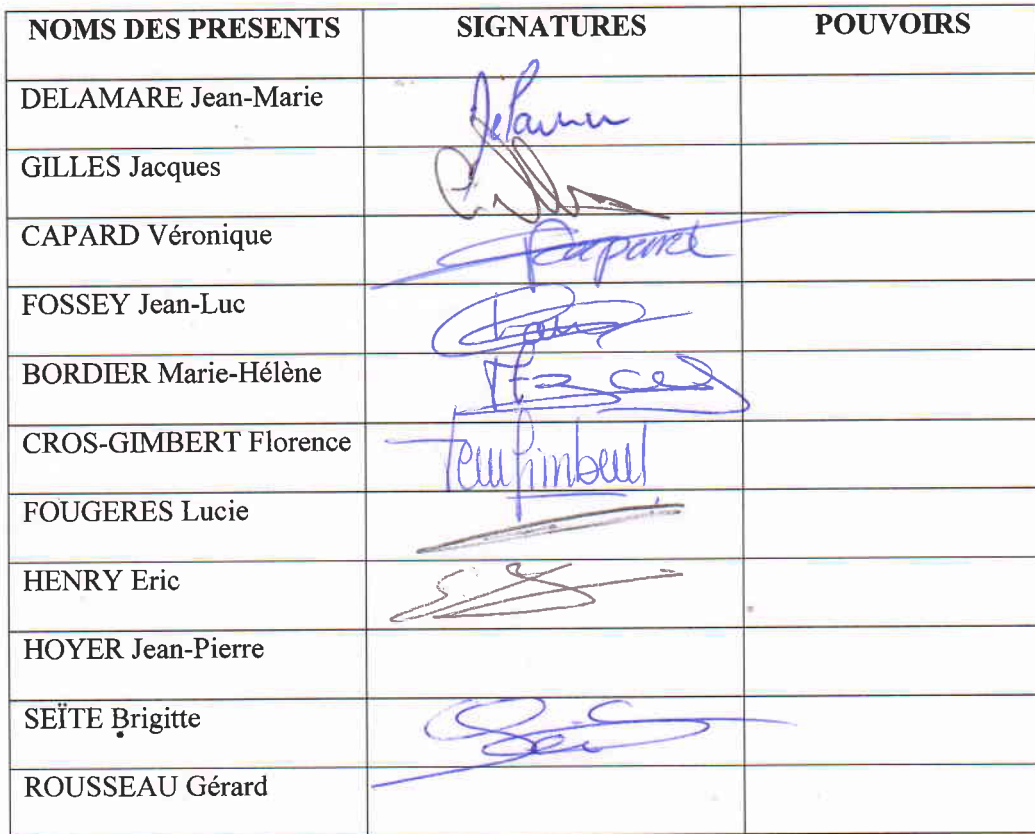 NOMS DES PRESENTS SIGNATURES POUVOIRS
DELAMARE Jean-Marie
GILLES Jacques
CAPARD Véronique
FOSSEY Jean-Luc
BORDIER Marie-Hélène
CROS-GIMBERT Florence
FOUGERES Lucie
HENRY Eric
HOYER Jean-Pierre
SEÏTE Brigitte
ROUSSEAU Gérard